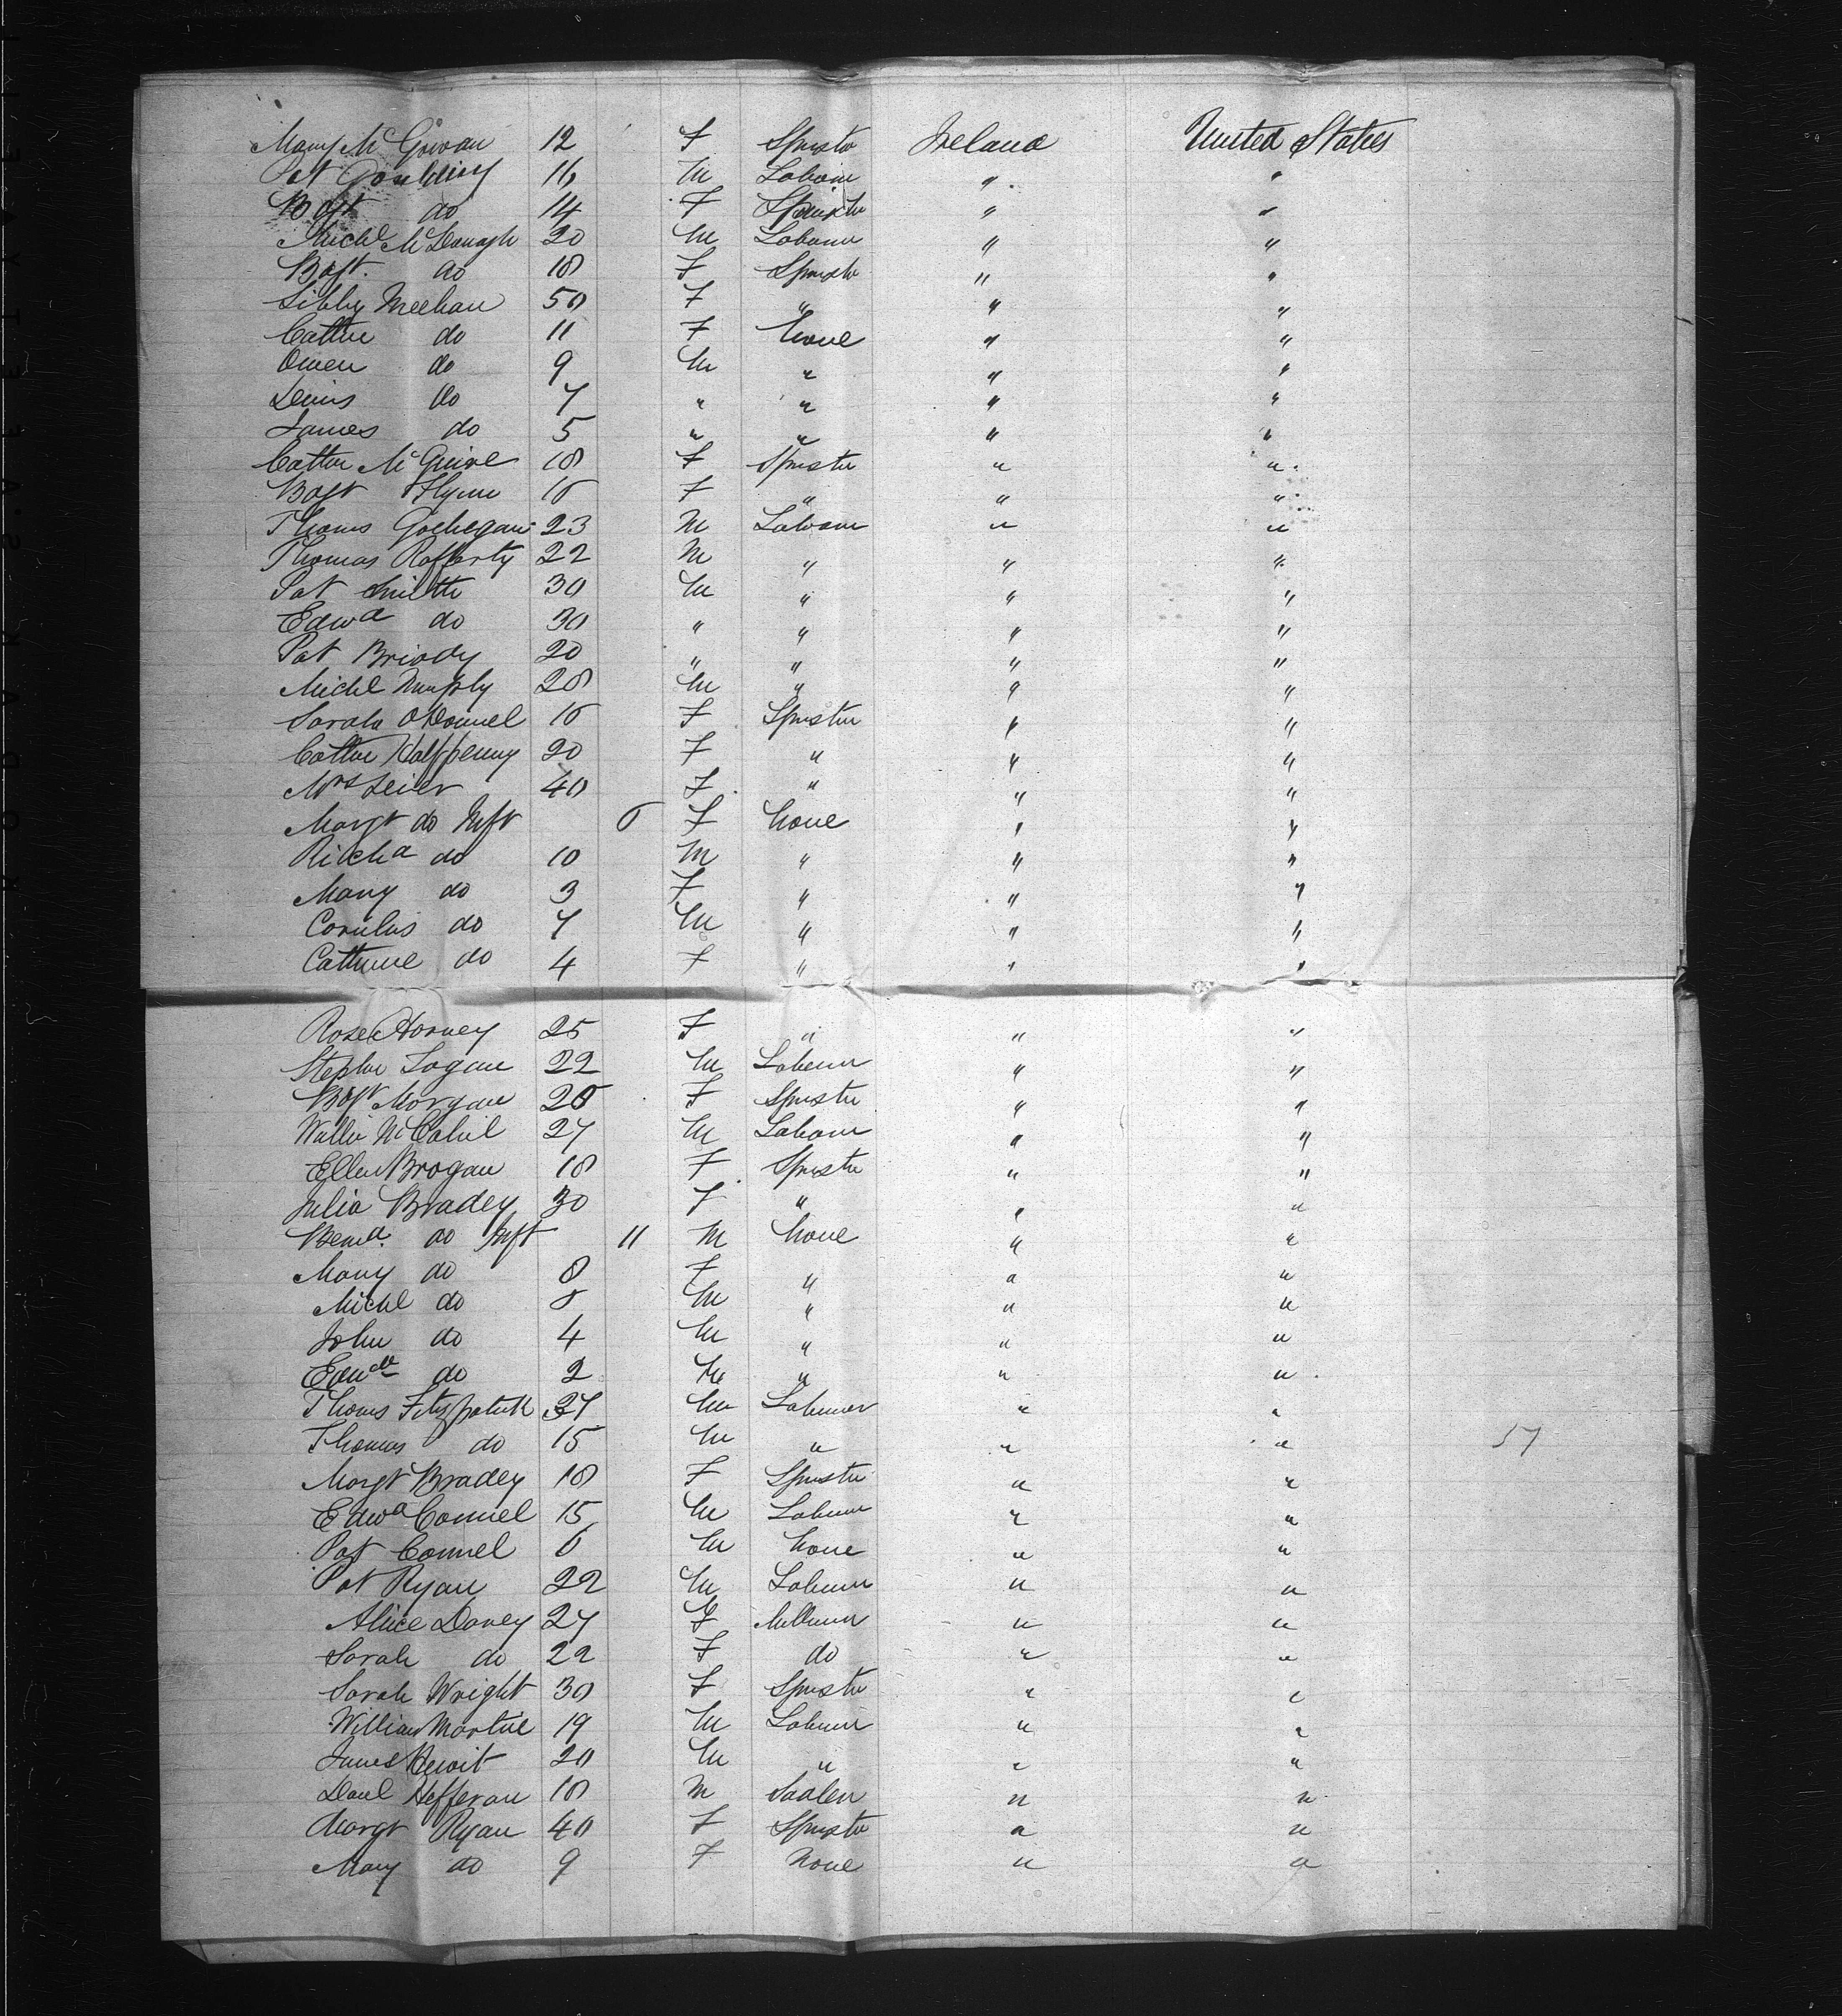 Mary McGowan 12 F Spinstr Ireland United States
Pat Goulding 16 M Laborer " "
Bgt do 14 F Spinstr " "
Michl McDonagh 20 M Laborer " "
Bgt. do 18 F Spinstr " "
Libby Meehan 50 F " " "
Cathne do 11 F None " "
Owen do 9 M " " "
Denis do 7 " " " "
James do 5 " " " "
Cathne McGuire 18 F Spinstr " "
Bgt Flynn 16 F " " "
Thoms Geehegan 23 M Laborer " "
Thomas Rafferty 22 M " " "
Pat Smith 30 M " " "
Edwd do 30 " " " "
Pat Briody 20 " " " "
Michl Murphy 28 M " " "
Sarah ODonnel 16 F Spinstr " "
Cathne Halfpenny 20 F " " "
Mrs 40 F " " "
Margt do Inft 6 F None " "
Richd do 10 M " " "
Mary do 3 F " " "
Cornelus do 7 M " " "
Catherine do 4 F " " "
Rose Harvey 25 F " " "
Stephn Logan 22 M Laborer " "
Bgt Morgan 20 F Spinstr " "
Walter McCahil 27 M Laborer " "
Ellen Brogan 18 F Spinstr " "
Julia Bradey 30 F " " "
Bernd. do Inft 11 M None " "
Mary do 8 F " " "
Michl do 8 M " " "
John do 4 M " " "
Edwd do 2 M " " "
Thoms Fitzpatrick 37 M Laborer " "
Thomas do 15 M " " " 57
Margt Bradey 18 F Spinstr " "
Edwd Connel 15 M Laborer " "
Pat Connel 6 M None " "
Pat Ryan 22 M Laborer " "
Alice Davey 27 F Milliner " "
Sarah do 22 F do " "
Sarah Wright 30 F Spinstr " "
William Martin 19 M Laborer " "
James Hewit 20 M " " "
Danl Hefferan 18 M Sadler " "
Margt Ryan 40 F Spinstr " "
Mary do 9 F None " "